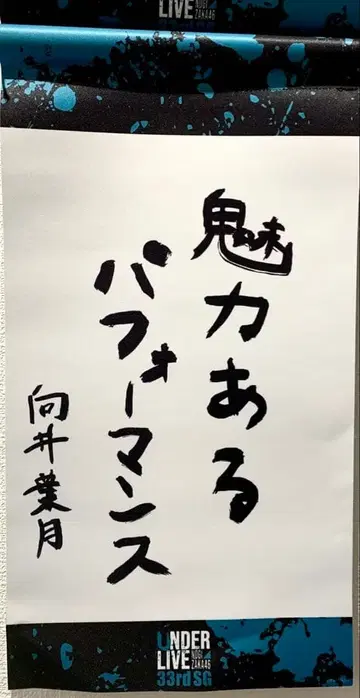 LIVE NOGI ZAKA46
魅力ある
パフォーマンス
向井葉月
UNDER
LIVE NOGI ZAKA46
33rd SG